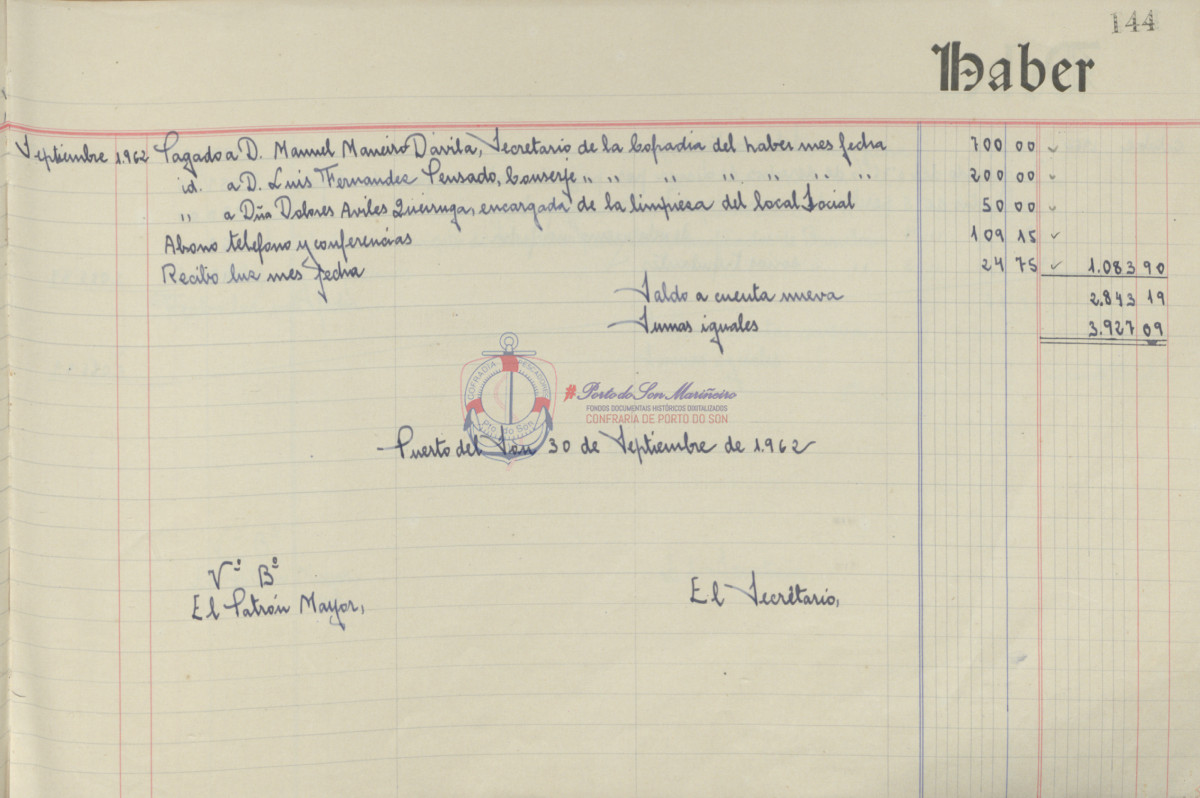 144
Haber
Septiembre 1.962 Pagado a D. Manuel Maneiro Dávila, Secretario de la Cofradia del haber mes fecha 700 00
id. a D. Luis Fernandez Pensado, Conserje " " " " " " " 200 00
" a Dña Dolores Aviles Queiruga, encargada de la limpieza del local Social 50 00
Abono telefono y conferencias 109 15
Recibo luz mes fecha 24 75 1.083 90
Saldo a cuenta nueva 2.843 19
Sumas iguales 3.927 09
COFRADIA PESCADORES
Pto. do Son
#Porto do Son Mariñeiro
FONDOS DOCUMENTAIS HISTÓRICOS DIXITALIZADOS
CONFRARÍA DE PORTO DO SON
Puerto del Son 30 de Septiembre de 1.962
Vº Bº
El Patrón Mayor,
El Secretario,